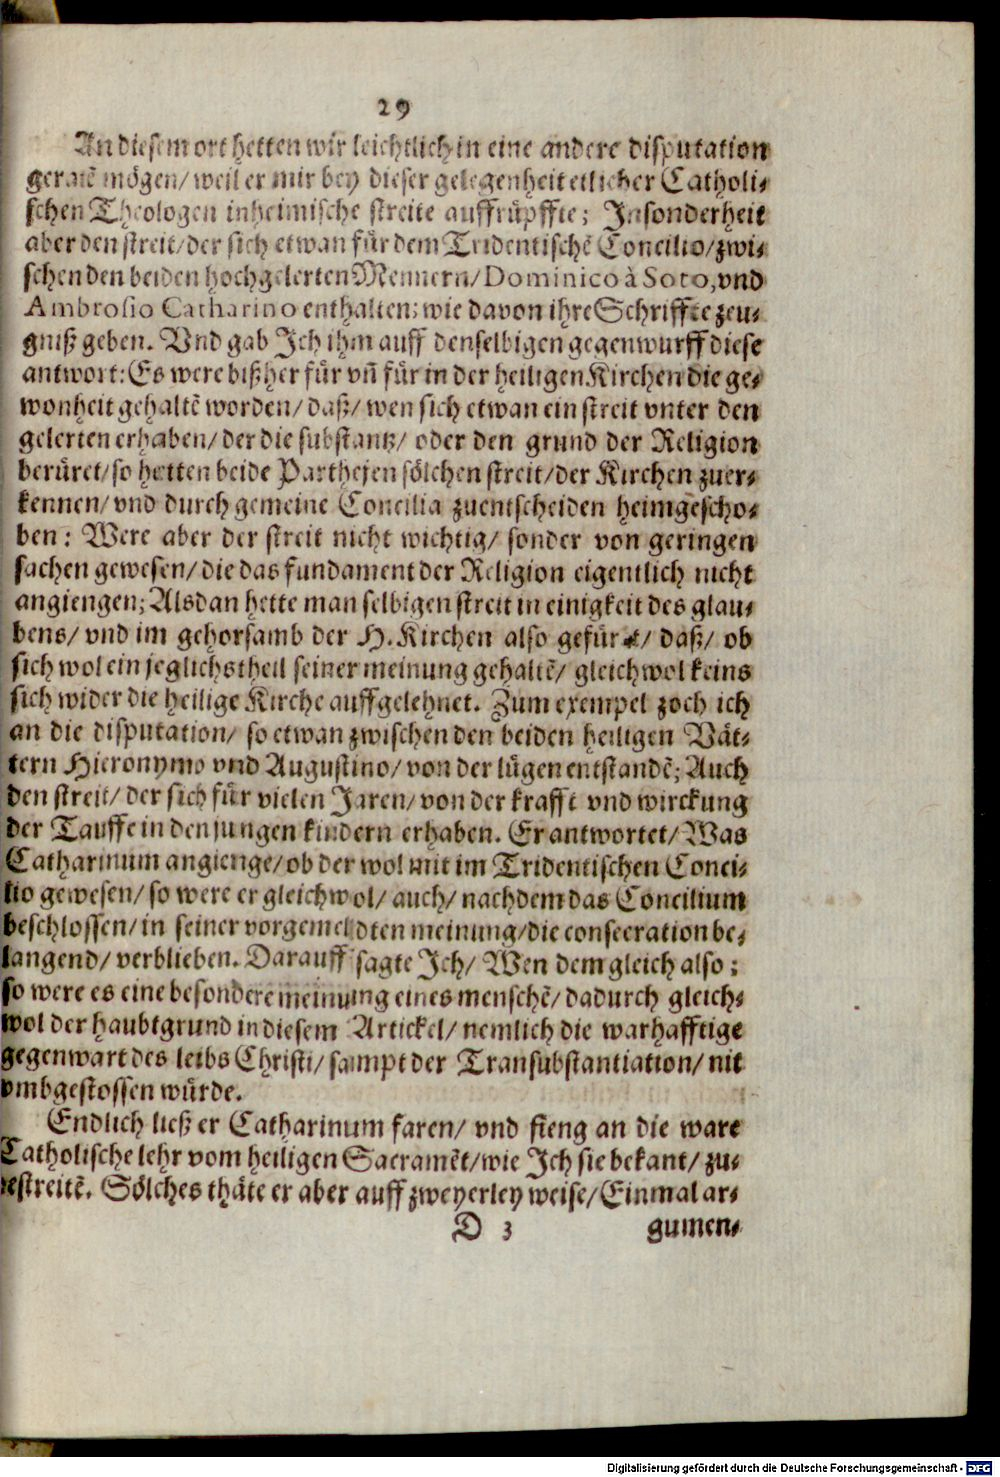 29
An diesem ort hetten wir leichtlich in eine andere disputation
geratē mögen/ weil er mir bey dieser gelegenheit etlicher Catholi-
schen Theologen inheimische streite auffrüpffte; Insonderheit
aber den streit/ der sich etwan für dem Tridentischē Concilio/ zwi-
schen den beiden hochgelerten Mennern/ Dominico à Soto, vnd
Ambrosio Catharino enthalten; wie davon ihre Schriffte zeu-
gniß geben. Vnd gab Ich ihm auff denselbigen gegenwurff diese
antwort: Es were bißher für vñ für in der heiligen Kirchen die ge-
wonheit gehaltē worden/ daß/ wen sich etwan ein streit vnter den
gelerten erhaben/ der die substantz/ oder den grund der Religion
berüret/ so hetten beide Partheyen sölchen streit/ der Kirchen zuer-
kennen/ vnd durch gemeine Concilia zuentscheiden heimgescho-
ben: Were aber der streit nicht wichtig/ sonder von geringen
sachen gewesen/ die das fundament der Religion eigentlich nicht
angiengen; Alsdan hette man selbigen streit in einigkeit des glau-
bens/ vnd im gehorsamb der H. Kirchen also gefürt/ daß/ ob
sich wol ein jeglichs theil seiner meinung gehaltē/ gleichwol keins
sich wider die heilige Kirche auffgelehnet. Zum exempel zoch ich
an die disputation/ so etwan zwischen den beiden heiligen Vät-
tern Hieronymo vnd Augustino/ von der lügen entstandē; Auch
den streit/ der sich für vielen Jaren/ von der krafft vnd wirckung
der Tauffe in den jungen kindern erhaben. Er antwortet/ Was
Catharinum angienge/ ob der wol mit im Tridentischen Conci-
lio gewesen/ so were er gleichwol/ auch/ nachdem das Concilium
beschlossen/ in seiner vorgemeldten meinung/ die consecration be-
langend/ verblieben. Darauff sagte Ich/ Wen dem gleich also;
so were es eine besondere meinung eines menschē/ dadurch gleich-
wol der haubtgrund in diesem Artickel/ nemlich die warhafftige
gegenwart des leibs Christi/ sampt der Transubstantiation/ nit
vmbgestossen würde.
Endlich ließ er Catharinum faren/ vnd fieng an die ware
Catholische lehr vom heiligen Sacramēt/ wie Ich sie bekant/ zu-
bestreitē. Sölches thäte er aber auff zweyerley weise/ Einmal ar-
D 3 gumen-
Digitalisierung gefördert durch die Deutsche Forschungsgemeinschaft - DFG